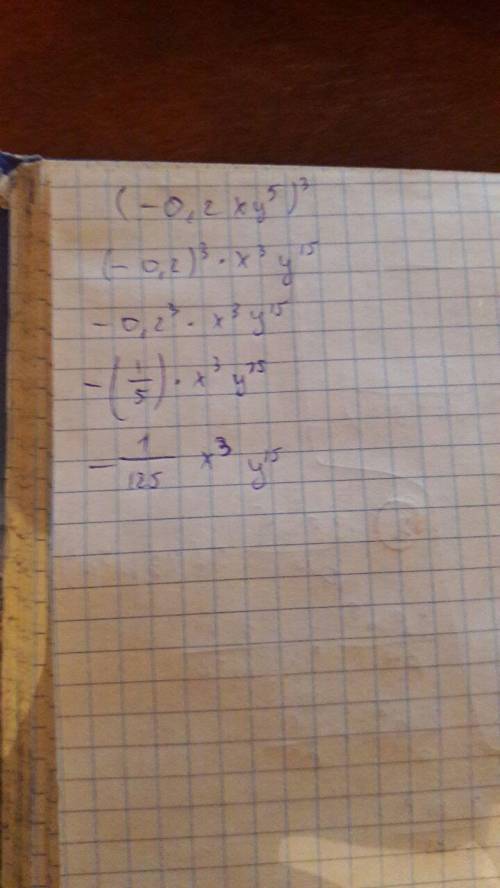 (-0,2 xy⁵)³
(-0,2)³ · x³ y¹⁵
-0,2³ · x³ y¹⁵
-(1/5) · x³ y¹⁵
-1/125 x³ y¹⁵